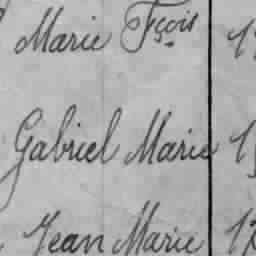 Marie Fçois
Gabriel Marie
Jean Marie